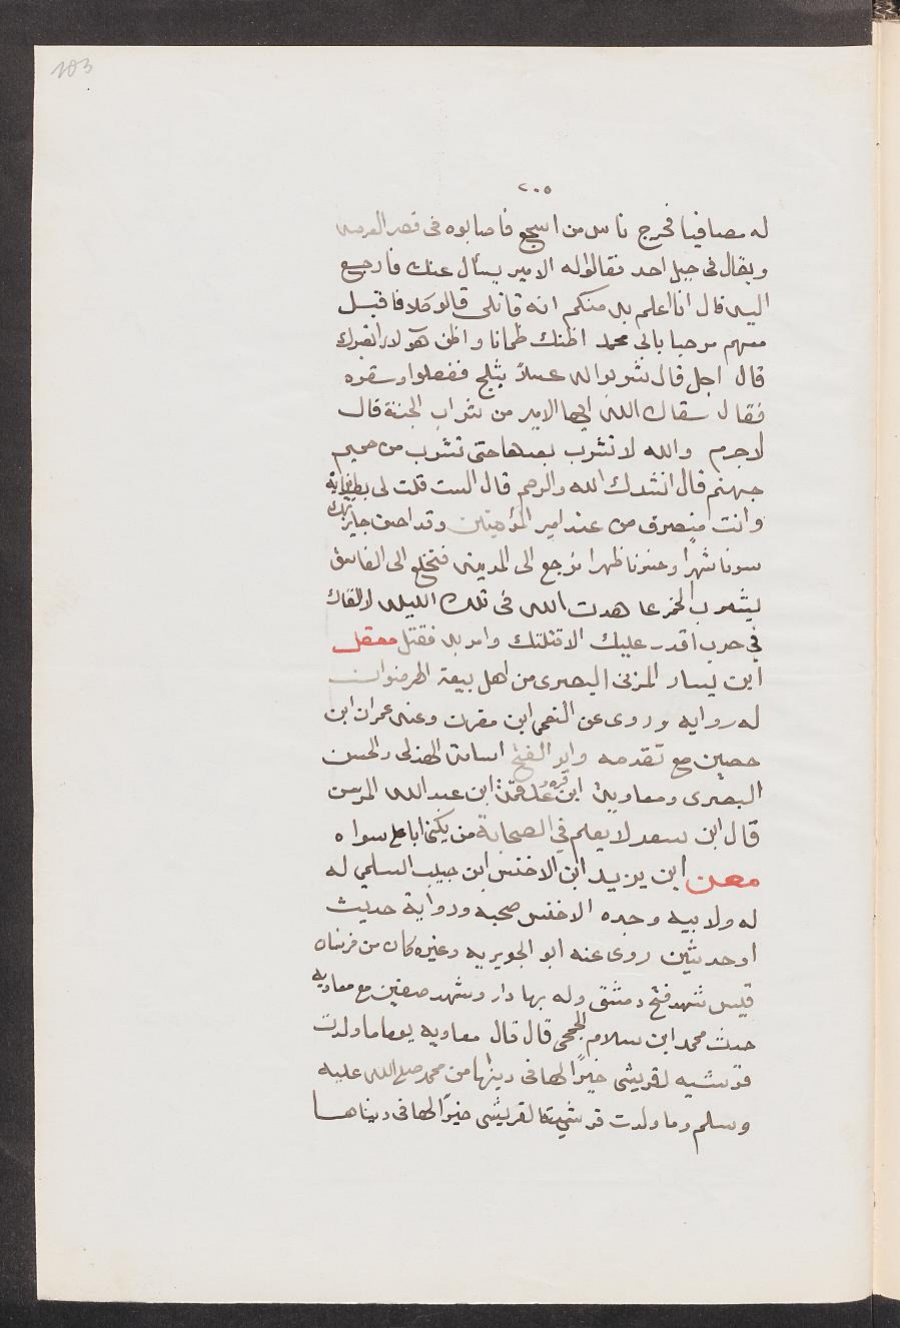 103
٢٠٥
له مصافيا فخرج ناس من اشجع فاصابوه فى قصر العرصه
ويقال فى جبل احد فقالوا له الامير يسأل عنك فارجع
اليه قال انا اعلم به منكم انه قاتلى قالو كلا فاقبل
معهم مرحبا بابى محمد اظنك ظمانا واظن هولاء اتعبوك
قال اجل قال شوبوا له عسلا بثلج ففعلوا وسقوه
فقال سقاك الله ايها الامير من شراب الجنة قال
لاجرم والله لا تشرب بعدها حتى تشرب من حميم
جهنم قال انشدك الله والرحم قال الست قلت لى بطبرية
وانت منصرف من عند امير المؤمنين وقد احسن جايزتك
سرنا شهرا وحسرنا ظهرا نرجع الى المدينه فنخلع الى الفاسق
يشرب الخمر عاهدت الله فى تلك الليله لا القاك
في حرب اقدر عليك الا قتلتك وامر به فقتل معقل
ابن يسار المزنى البصرى من اهل بيعة الرضوان
له روايه وروى عن النعمى ابن مقرن وعنه عمران ابن
حصين مع تقدمه وابو المليح اسامة الهذلى والحسن
البصرى ومعاوية ابن قره وعلقمة ابن عبد الله المزنى
قال ابن سعد لا يعلم في الصحابة من يكنى ابا على سواه
معن ابن يزيد ابن الاخنس ابن حبيب السلمي له
له ولابيه وجده الاخنس صحبه ورواية حديث
اوحديثين روى عنه ابو الجويريه وغيره كان من فرسان
قيس شهد فتح دمشق وله بها دار وشهد صفين مع معاويه
حدث محمد ابن سلام الجمحى قال قال معاويه يوما ما ولدت
قرشيه لقريشى خيرًا لها فى دينها من محمد صلى الله عليه
وسلم وما ولدت قرشية لقريشى خيرًا لها فى دنياها